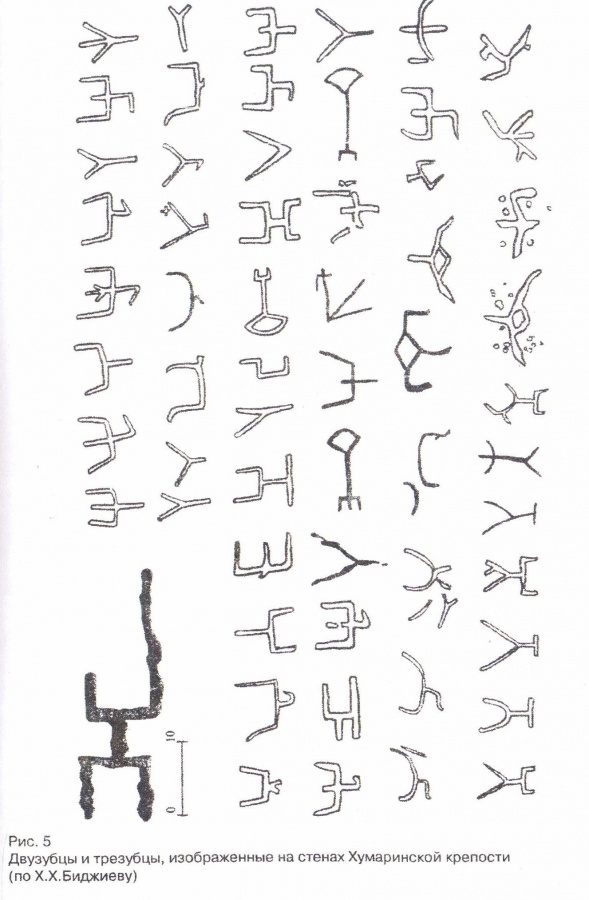 10
0
Рис. 5
Двузубцы и трезубцы, изображенные на стенах Хумаринской крепости
(по Х.Х.Биджиеву)